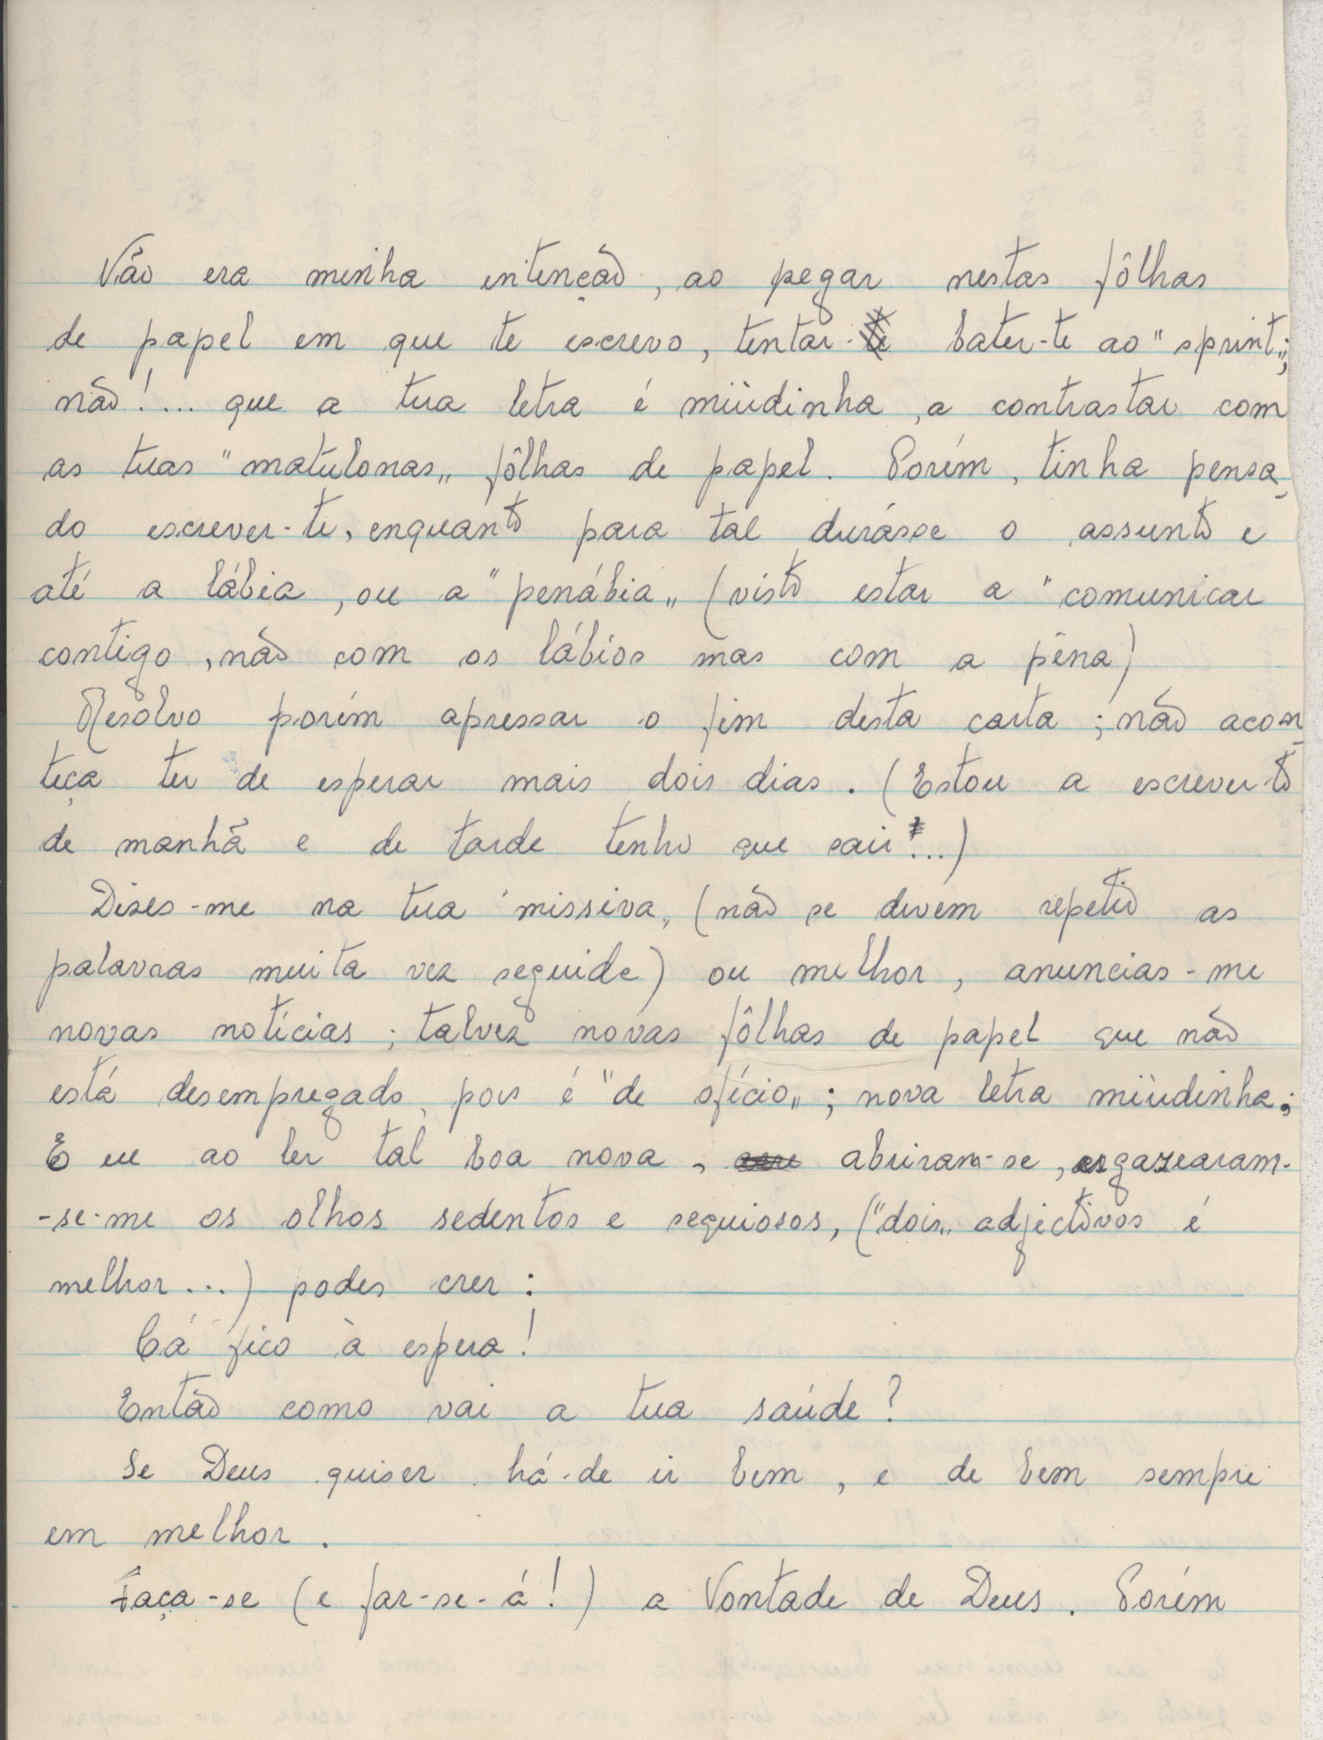 Não era minha intenção, ao pegar nestas fôlhas
de papel em que te escrevo, tentar-te bater-te ao "sprint";
não!... que a tua letra é miùdinha, a contrastar com
as tuas "matulonas" fôlhas de papel. Porém, tinha pensa-
do escrever-te, enquanto para tal durásse o assunto e
até a lábia, ou a "penábia" (visto estar a "comunicar
contigo, não com os lábios mas com a pêna)
Resolvo porém apressar o fim desta carta; não acon-
teça ter de esperar mais dois dias. (Estou a escrever-to
de manhã e de tarde tenho que sair!...)
Dizes-me na tua "missiva" (não se devem repetir as
palavras muita vez seguida) ou melhor, anuncias-me
novas notícias; talvez novas fôlhas de papel que não
está desempregado, pois é "de ofício"; nova letra miùdinha;
E eu ao ler tal boa nova, abriram-se, esgazearam-
-se-me os olhos sedentos e sequiosos, ("dois" adjectivos é
melhor...) podes crer:
Cá fico à espera!
Então como vai a tua saúde?
Se Deus quiser há-de ir bem, e de bem sempre
em melhor.
Faça-se (e far-se-á!) a Vontade de Deus. Porém